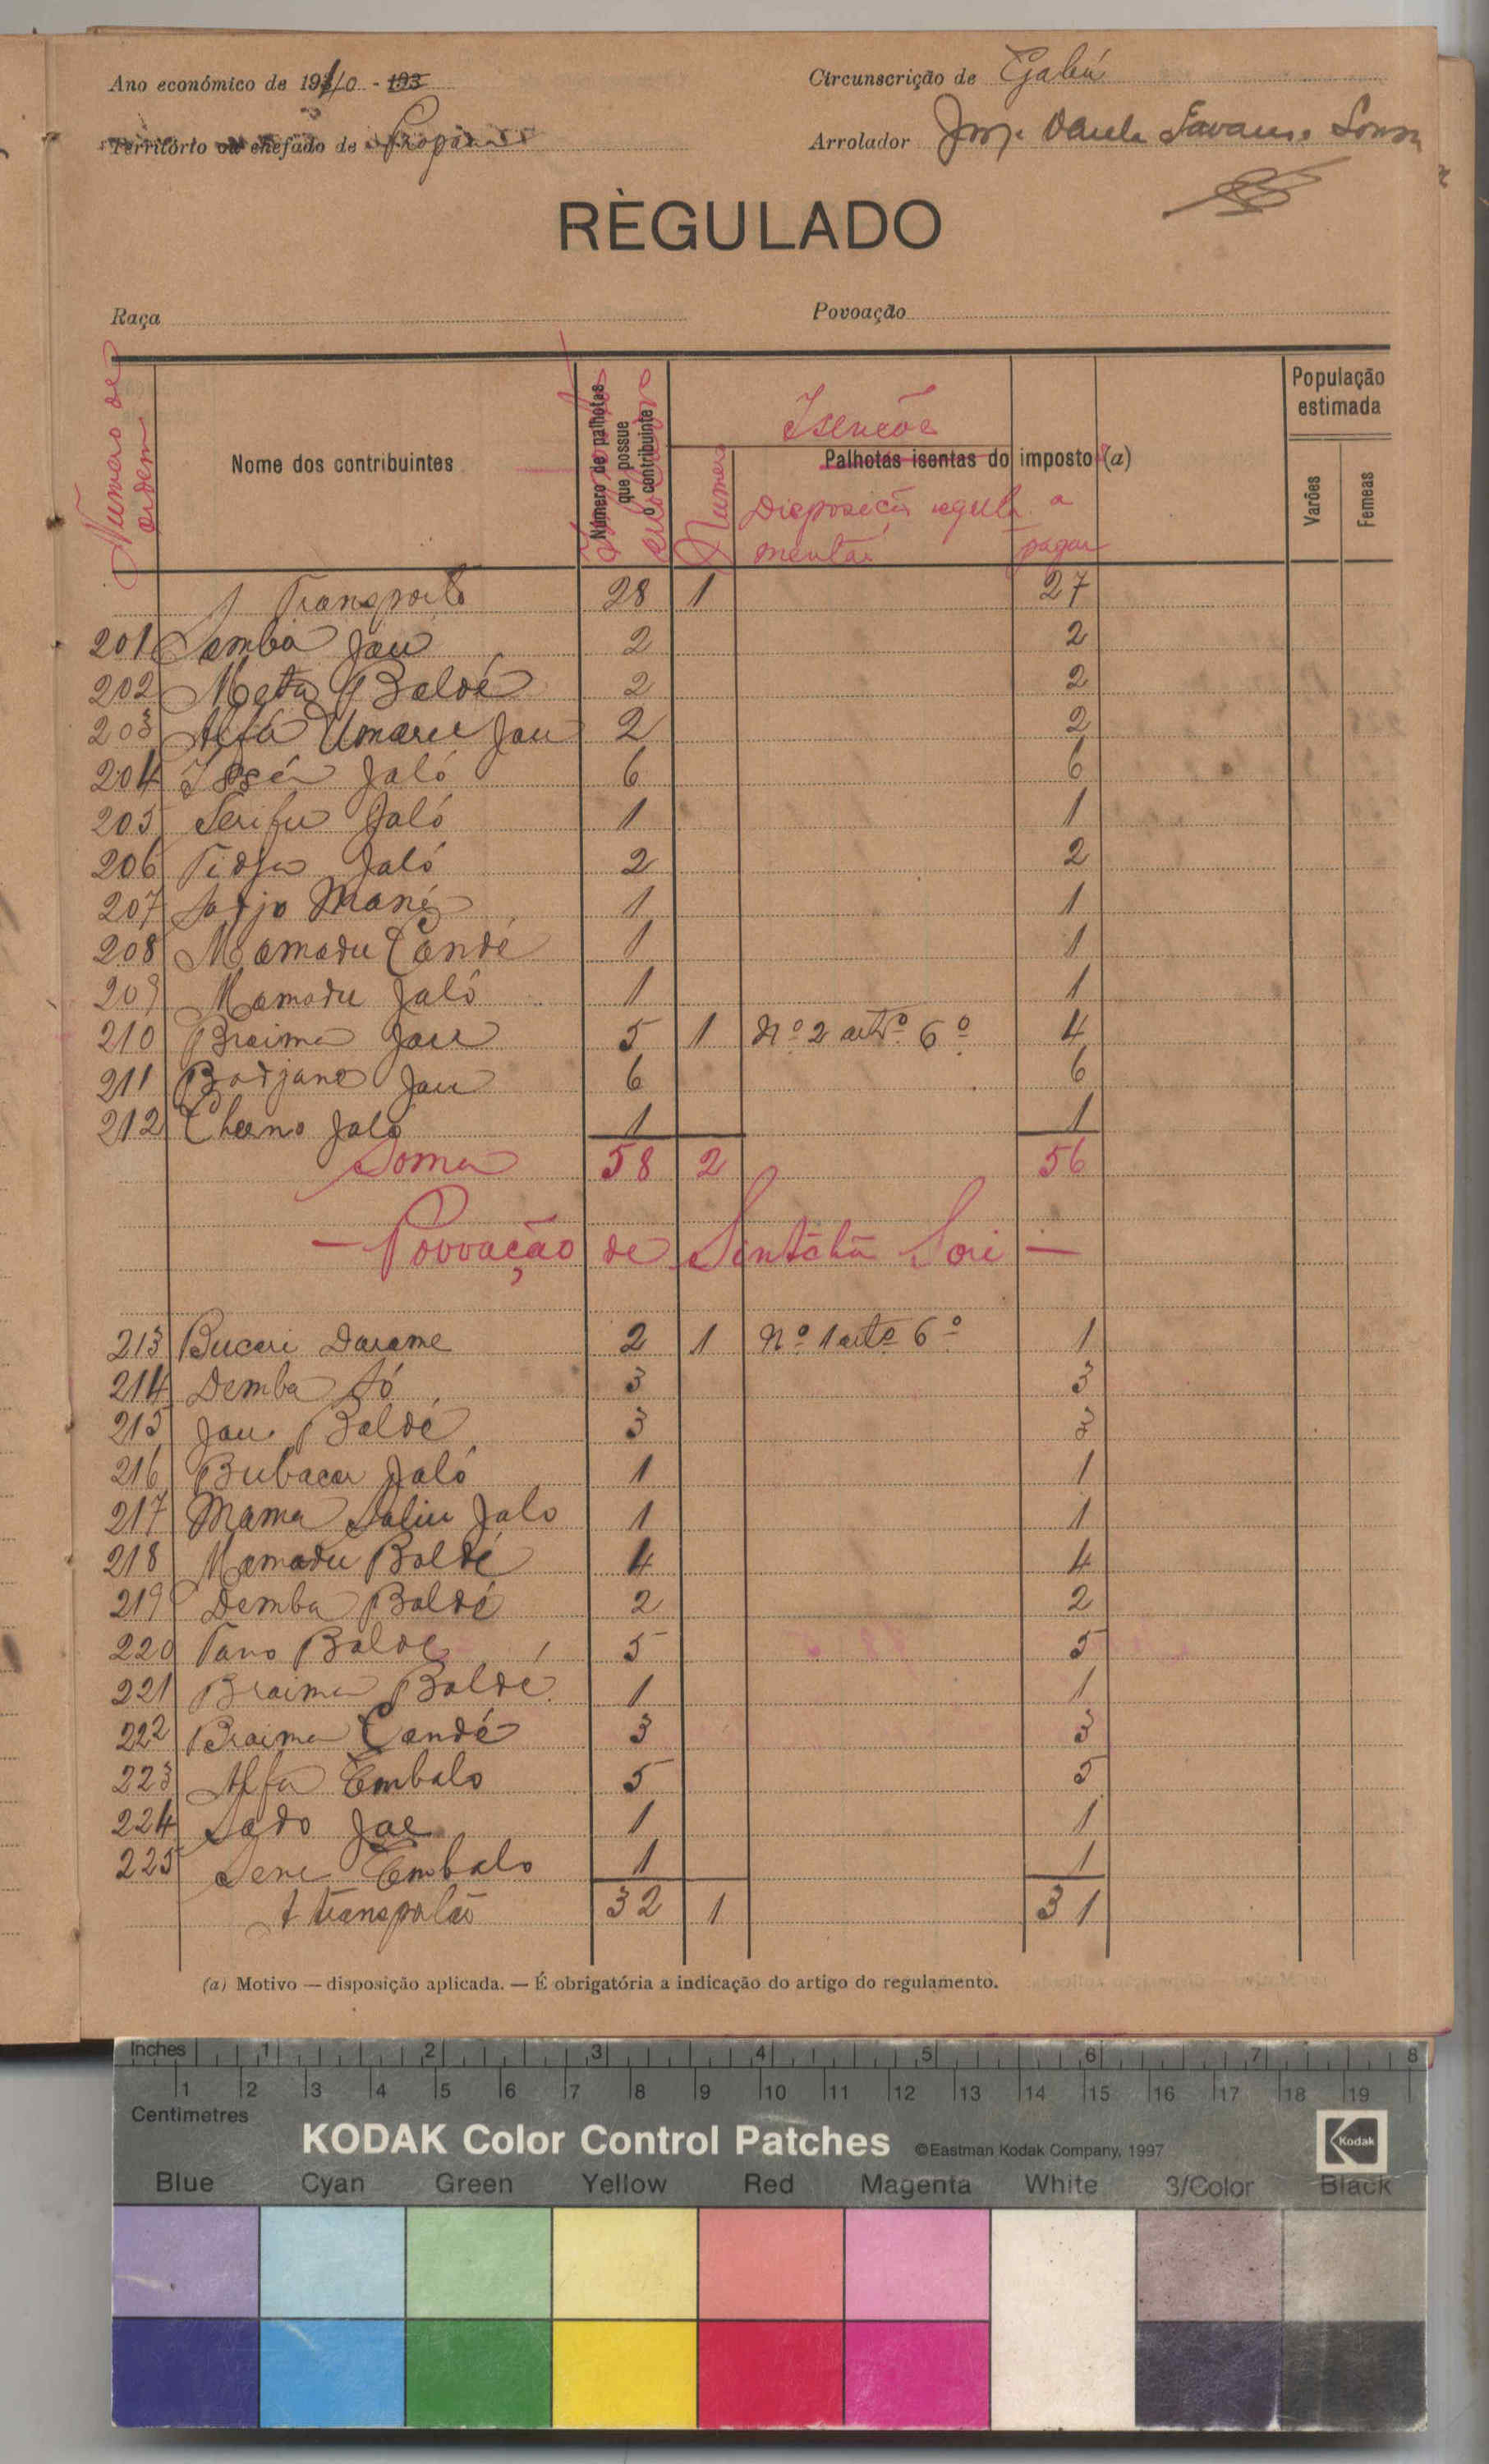 Ano económico de 1940 - 193
Circunscrição de Gabú
Território ou chefado de Propana
Arrolador Jorge Paula Tavares Sousa
RÈGULADO
Raça
Povoação
Número de ordem
Nome dos contribuintes
Número de palhotas que possue o contribuinte
Isenções
Palhotas isentas do imposto (a)
Número
Disposição regula
mentar
a
pagar
População estimada
Varões
Femeas
Transporte 28 1 27
201 Samba Jau 2 2
202 Meta Baldé 2 2
203 Alfa Umaru Jau 2 2
204 Issén Jaló 6 6
205 Serifu Jaló 1 1
206 Tidja Jaló 2 2
207 Sarjo Mané 1 1
208 Mamadu Candé 1 1
209 Mamadu Jaló 1 1
210 Braima Jau 5 1 Nº 2 artº 6º 4
211 Bodjano Jau 6 6
212 Cherno Jaló 1 1
Soma 58 2 56
— Povoação de Sintchã Sori —
213 Bucari Darame 2 1 Nº 1 artº 6º 1
214 Demba Só 3 3
215 Jau Baldé 3 3
216 Bubacar Jaló 1 1
217 Mama Saliu Jalo 1 1
218 Mamadu Baldé 4 4
219 Demba Baldé 2 2
220 Tano Balde 5 5
221 Braima Baldé 1 1
222 Braima Candé 3 3
223 Alfa Embalo 5 5
224 Sado Jae 1 1
225 Sene Embalo 1 1
A transportar 32 1 31
(a) Motivo — disposição aplicada. — É obrigatória a indicação do artigo do regulamento.
Inches 1 2 3 4 5 6 7 8
1 2 3 4 5 6 7 8 9 10 11 12 13 14 15 16 17 18 19
Centimetres
KODAK Color Control Patches ©Eastman Kodak Company, 1997 Kodak
Blue Cyan Green Yellow Red Magenta White 3/Color Black